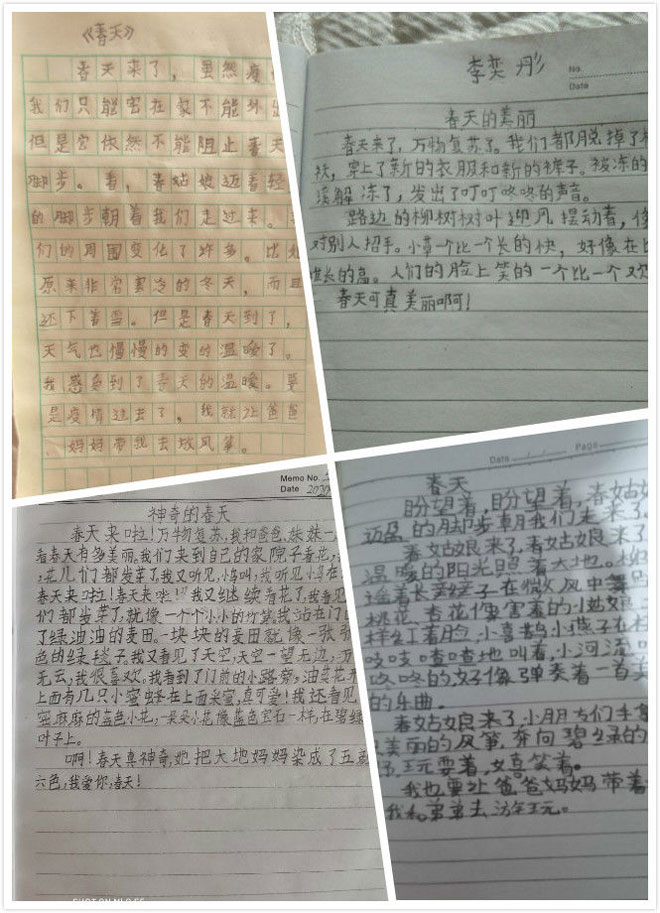 《春天》
春天来了，虽然疫
我们只能宅在家不能外出
但是它依然不能阻止春天
脚步。看，春姑娘迈着轻
的脚步朝着我们走过来。
们的周围变化了许多。比如
原来非常寒冷的冬天，而且
还下着雪。但是春天到了，
天气也慢慢的变的温暖了。
我感觉到了春天的温暖。要
是疫情过去了，我就让爸爸
、妈妈带我去放风筝。
李奕彤
No
Date
春天的美丽
春天来了，万物复苏了。我们都脱掉了
袄，穿上了新的衣服和新的裤子。被冻的
溪解冻了，发出了叮叮咚咚的声音。
路边的柳树树叶迎风摆动着，像
对别人招手。小草一个比一个长的快，好像在比
谁长的高。人们的脸上笑的一个比一个欢
春天可真美丽啊！
Memo No.
Date
神奇的春天
春天来啦！万物复苏，我和爸爸，妹妹一
看春天有多美丽。我们来到自己的家院子看花，
，花儿们都发芽了，我又听见，小鸟叫，我听见小鸟在
春天来啦！春天来啦！”我又继续看花了，我看见
们都发芽了，就像一个个小小的竹笋。我站在门
了绿油油的麦田。一块块的麦田就像一张张
色的绿毯子。我又看见了天空，天空一望无边，万
无云，我很喜欢。我看到了门前的小路旁，油菜花
上面有几只小蜜蜂在上面采蜜，真可爱！我还看见
密麻麻的蓝色小花，一朵朵小花像蓝色宝石一样，在碧绿
叶子上。
啊！春天真神奇，她把大地妈妈染成了五颜
六色，我爱你，春天！
Date
Page
春天
盼望着，盼望着，春姑娘
迈着的脚步朝我们走来了。
春姑娘来了，春姑娘来了
温暖的阳光照着大地。柳
摇着长辫子在微风中舞
桃花、杏花像害羞的小姑娘
样红着脸，小喜鹊小燕子在
吱吱喳喳地叫着，小河流
咚咚的，好像弹奏着一首美
的乐曲。
春姑娘来了，小朋友们手拿
美丽的风筝，奔向碧绿的
玩耍着，嬉笑着。
我也要让爸爸妈妈带着
我和弟弟去游玩。